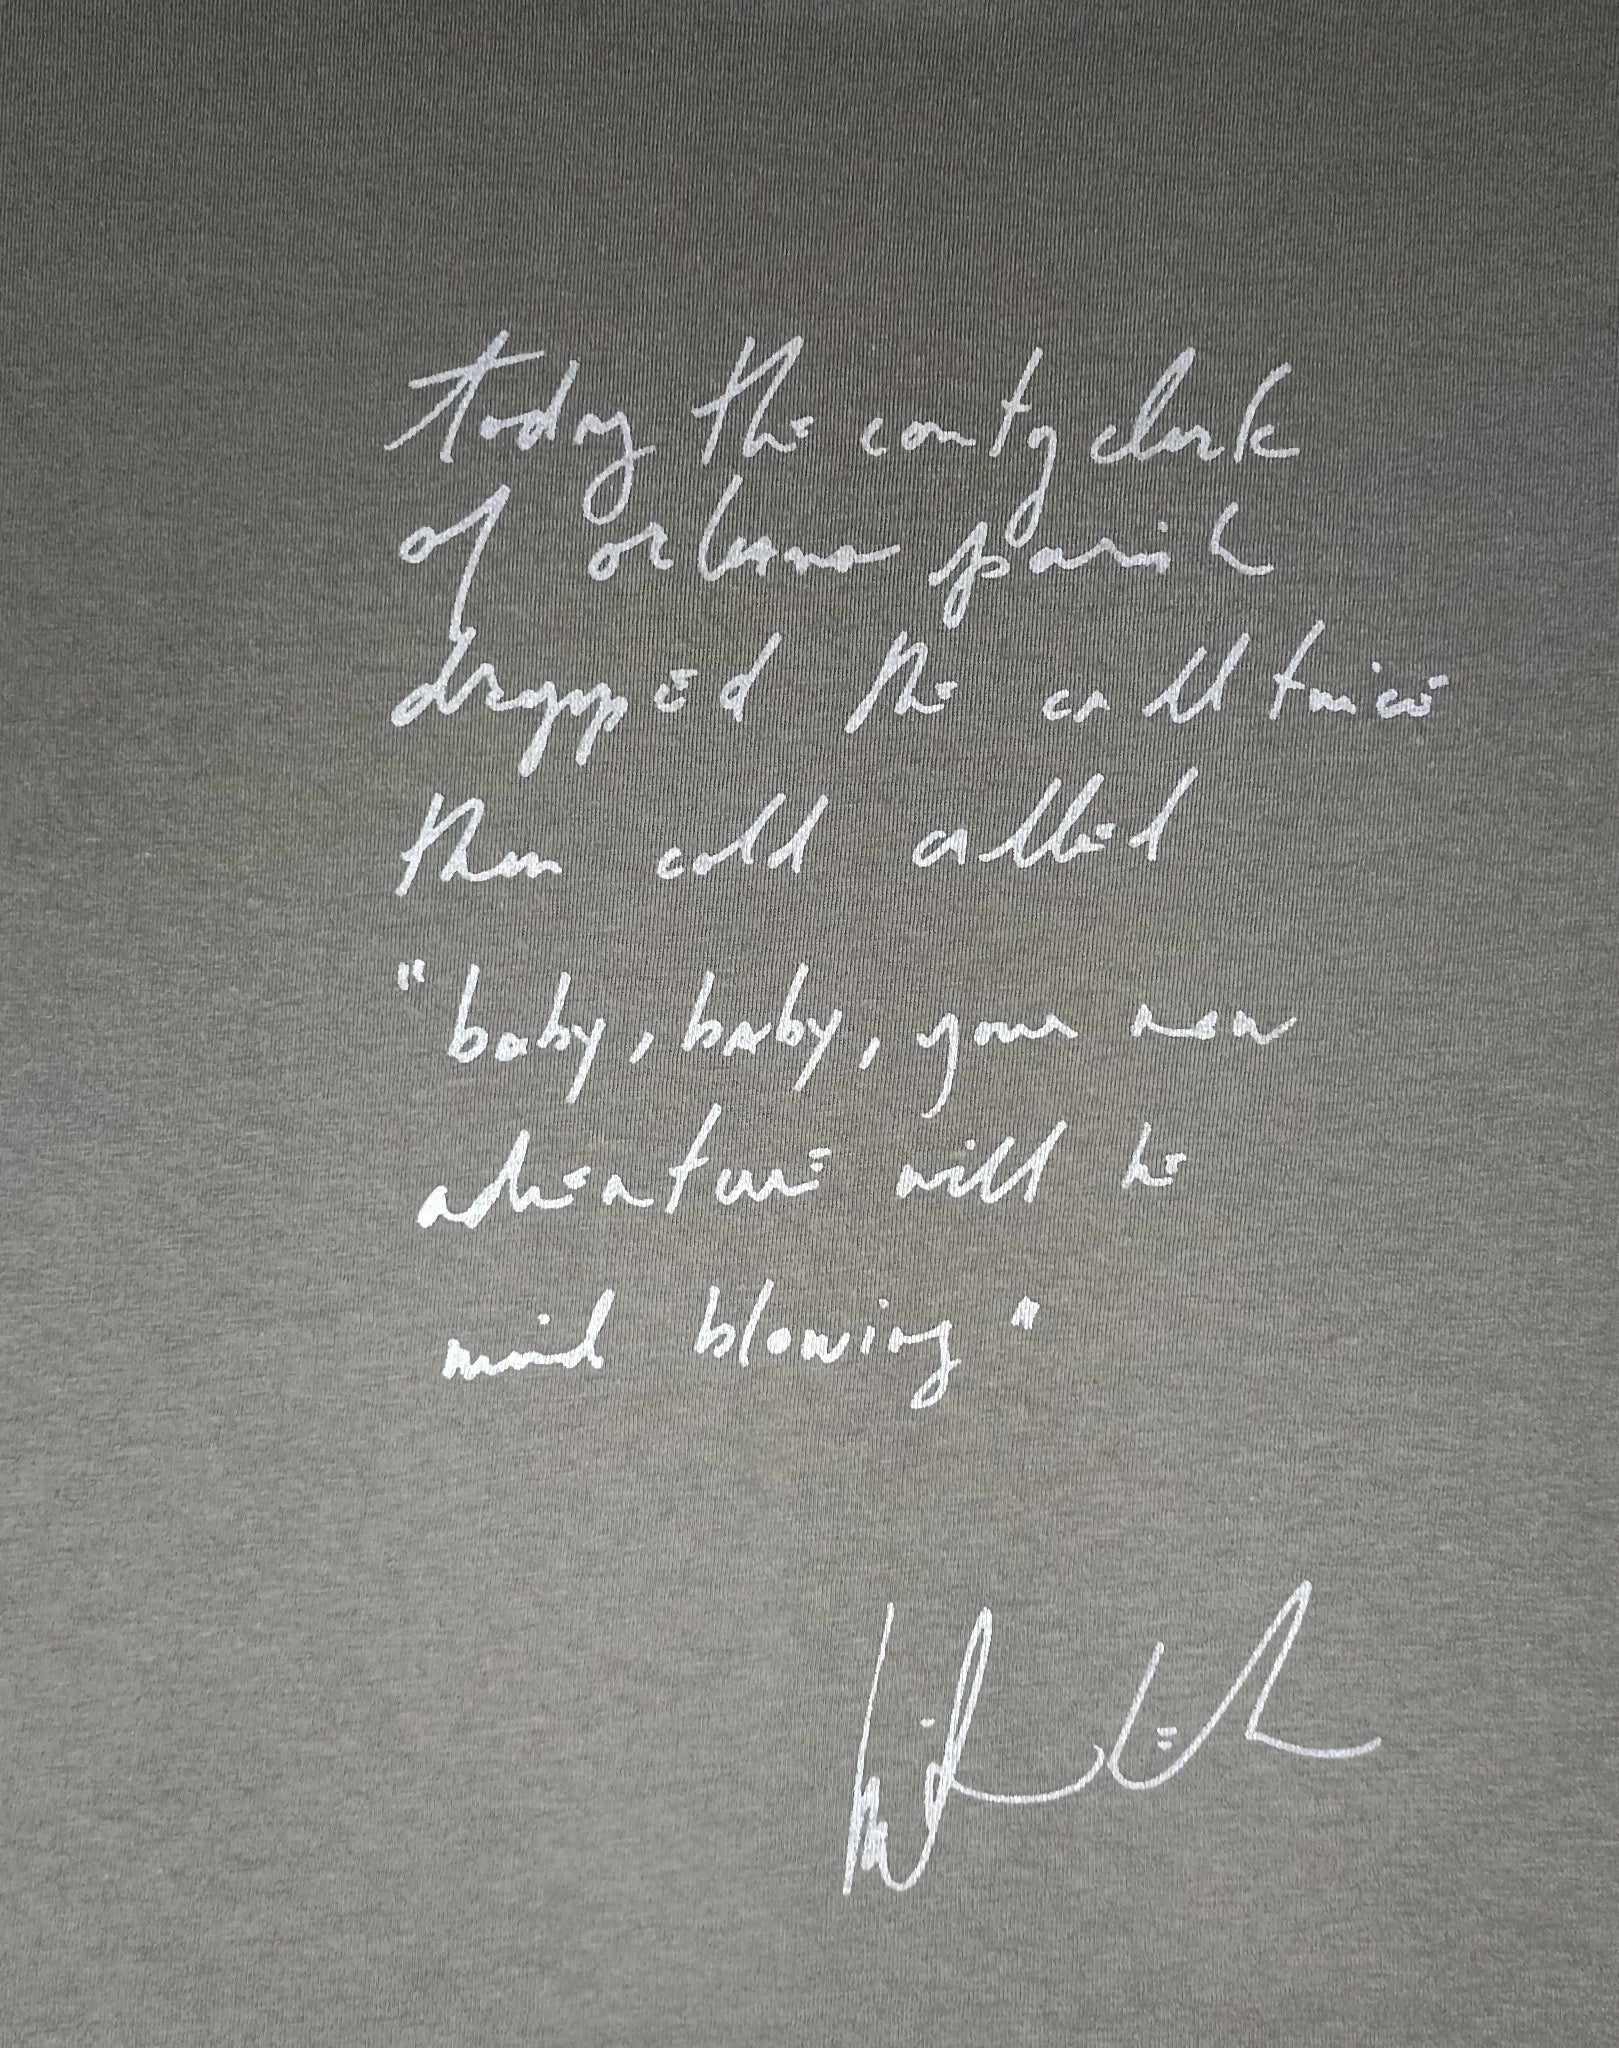 today the county clerk
of orleans parish
dropped the call twice
then cold called
"baby, baby, your new
adventure will be
mind blowing"